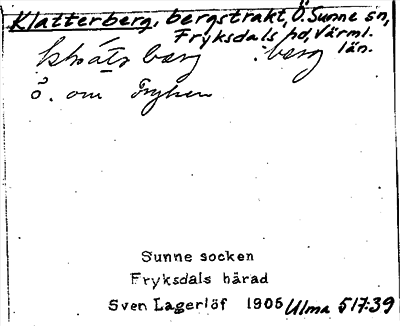 Klatterberg, bergstrakt, Ö. Sunne sn,
Fryksdals hd, Värml.
län.
bärg : bärg
ö. om Fryken
Sunne socken
Fryksdals härad
Sven Lagerlöf 1905 Ulma 517:39